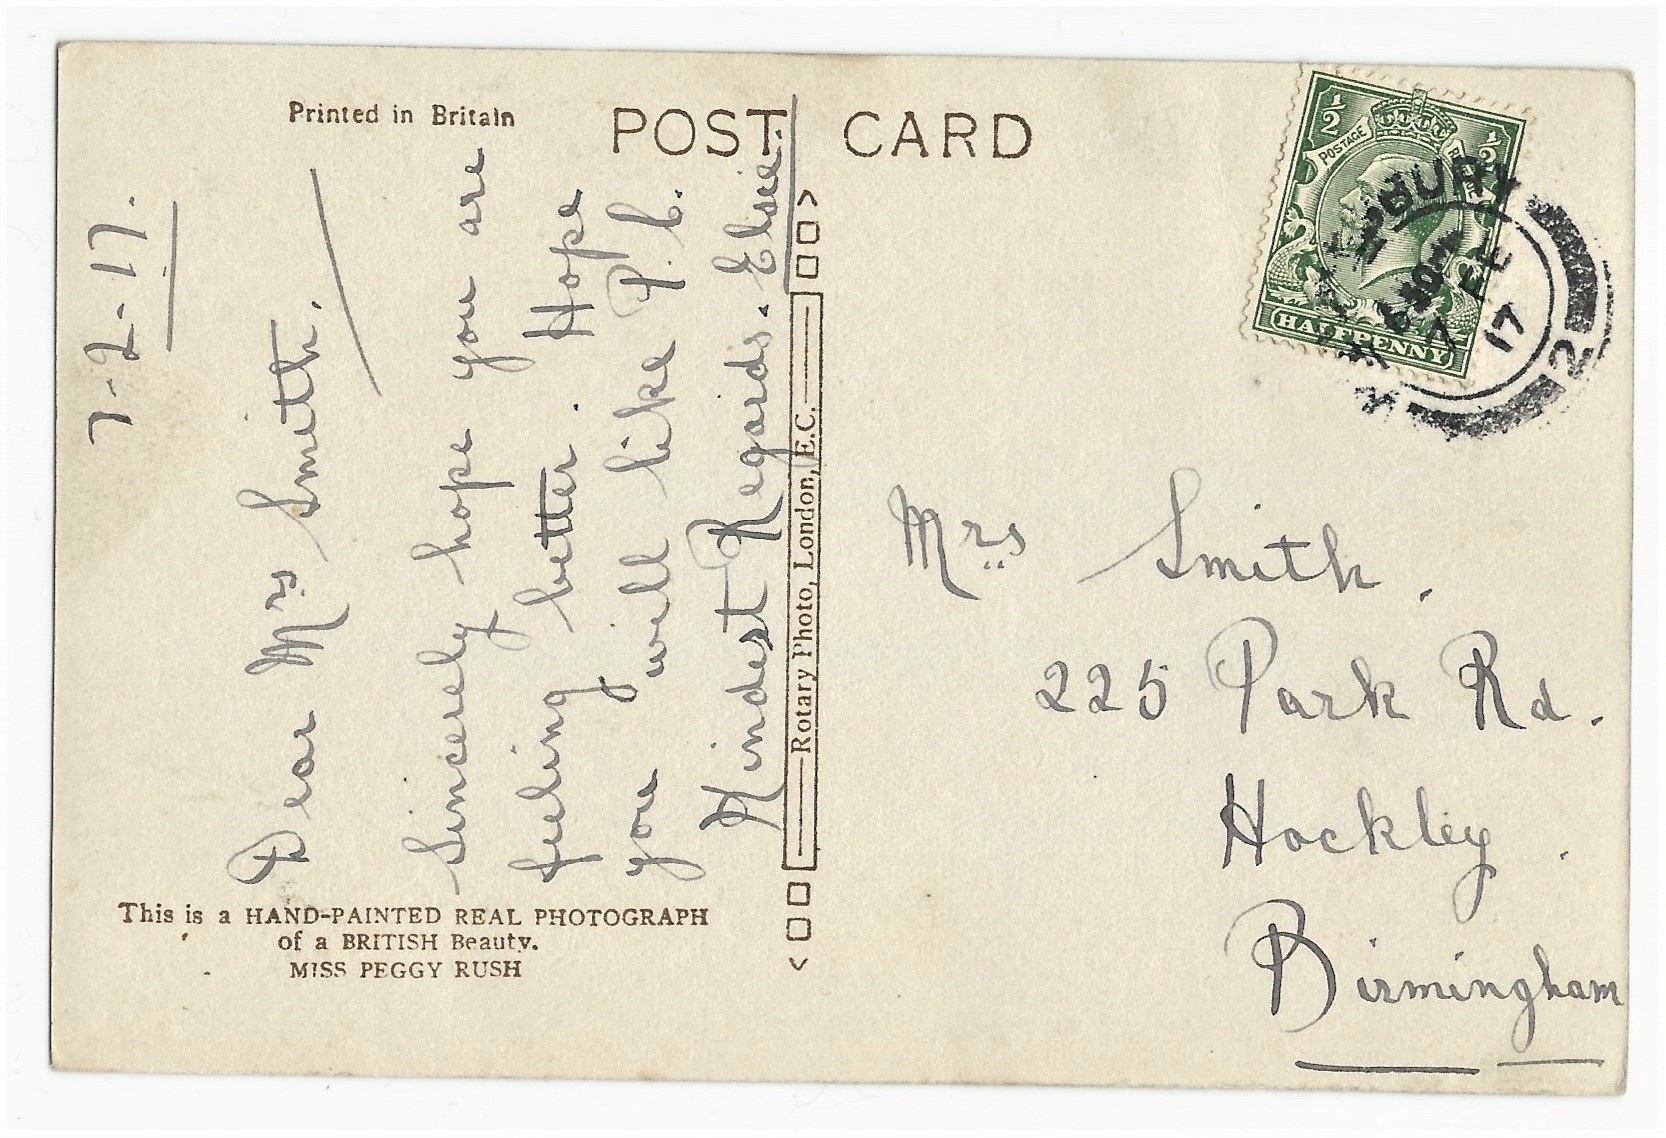 Printed in Britain
POST CARD
7-2-17.
Dear Mrs Smith.
Sincerely hope you are
feeling better. Hope
you will like P.C.
Kindest Regards. Elsie.
This is a HAND-PAINTED REAL PHOTOGRAPH
of a BRITISH Beauty.
MISS PEGGY RUSH
Rotary Photo, London, E.C.
1/2 1/2
POSTAGE
HALFPENNY
7 FE
17
2
Mrs Smith.
225 Park Rd.
Hockley
Birmingham